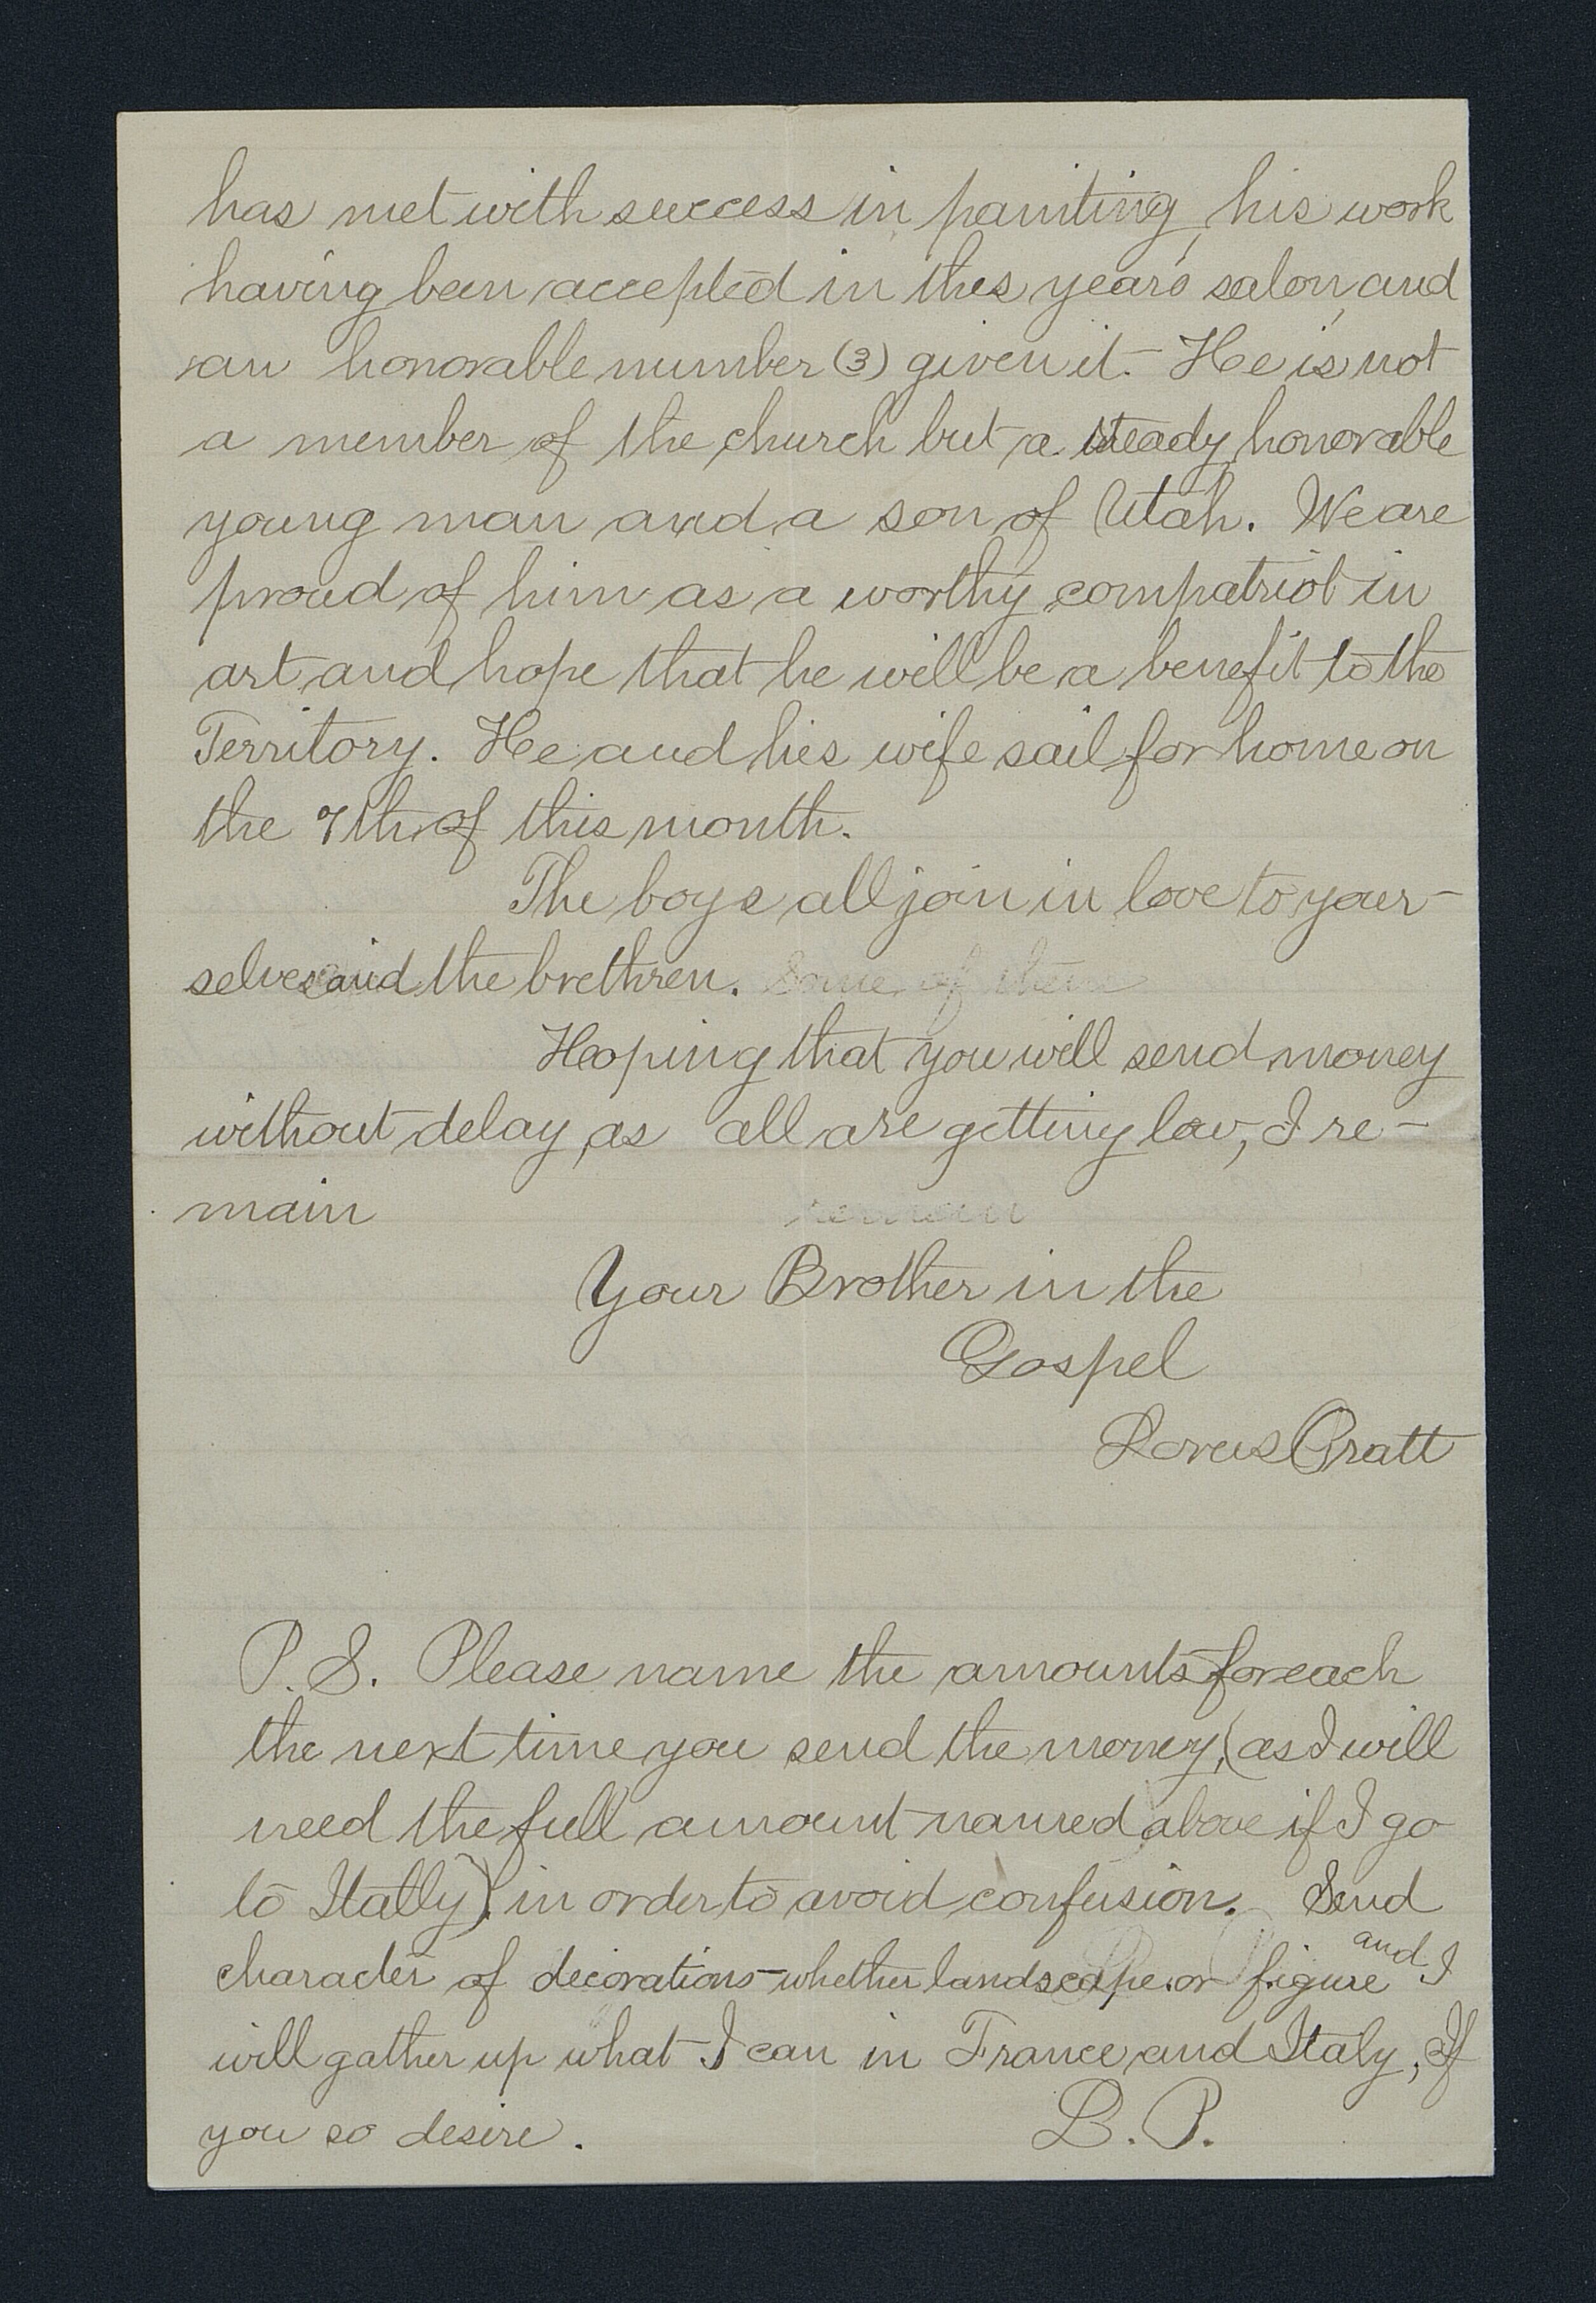 has met with success in painting, his work
having been accepted in this year's salon, and
an honorable number (3) given it. He is not
a member of the church but a steady, honorable
young man and a son of Utah. We are
proud of him as a worthy compatriot in
art, and hope that he will be a benefit to the
Territory. He and his wife sail for home on
the 7th of this month.
The boys all join in love to your-
selves and the brethren. Some of them
Hoping that you will send money
without delay, as all are getting low, I re-
main remain
Your Brother in the
Gospel
Lorus Pratt
P.S. Please name the amounts for each
the next time you send the money, (as I will
need the full amount named above if I go
to Itally) in order to avoid confusion. Send
character of decorations - whether landscape or figure and I
will gather up what I can in France and Italy, if
you so desire. L. P.